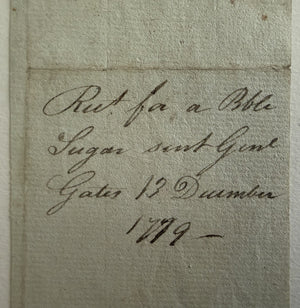 Rect. for a Bbl
Sugar sent Genl
Gates 13 December
1779 —